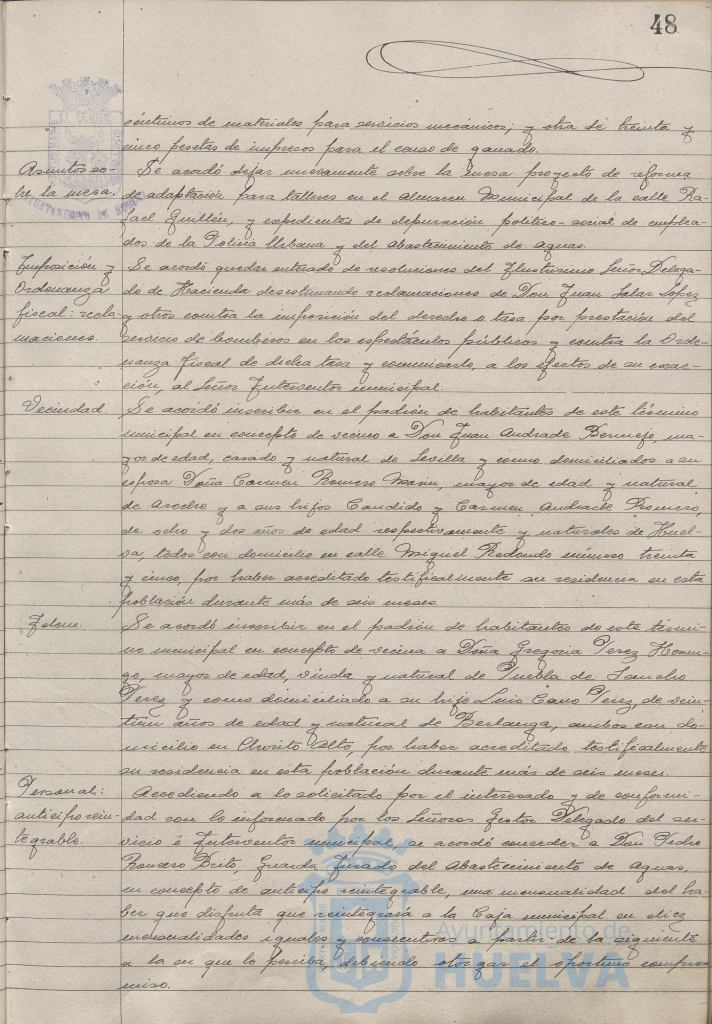 48
céntimos de materiales para servicios mecánicos; y otra de treinta y
cinco pesetas de impresos para el censo de ganado.
Asuntos so-
bre la mesa.
Se acordó dejar nuevamente sobre la mesa proyecto de reforma
de adaptación para talleres en el Almacen Municipal de la calle Ra-
fael Guillén, y expedientes de depuración politico-social de emplea-
dos de la Policia Urbana y del Abastecimiento de Aguas.
Imposición y
Ordenanza
fiscal: recla-
maciones.
Se acordó quedar enterado de resoluciones del Ilustrisimo Señor Delega-
do de Hacienda desestimando reclamaciones de Don Juan Salar López
y otros contra la imposición del derecho o tasa por prestación del
servicio de bomberos en los espectáculos públicos y contra la Orde-
nanza fiscal de dicha tasa y comunicarlo, a los efectos de su exac-
ción, al Señor Interventor municipal.
Vecindad.
Se acordó inscribir en el padrón de habitantes de este término
municipal en concepto de vecino a Don Juan Andrade Bermejo, ma-
yor de edad, casado y natural de Sevilla y como domiciliados a su
esposa Doña Carmen Romero Marin, mayor de edad y natural
de Aroche y a sus hijos Candido y Carmen Andrade Romero,
de ocho y dos años de edad respectivamente y naturales de Huel-
va, todos con domicilio en calle Miguel Redondo número treinta
y cinco, por haber acreditado testificalmente su residencia en esta
población durante más de seis meses.
Idem.
Se acordó inscribir en el padrón de habitantes de este térmi-
no municipal en concepto de vecina a Doña Gregoria Perez Hormi-
go, mayor de edad, viuda y natural de Puebla de Sancho
Perez y como domiciliado a su hijo Luis Cano Perez, de vein-
tiun años de edad y natural de Berlanga, ambos con do-
micilio en Chorito Alto, por haber acreditado testificalmente
su residencia en esta población durante más de seis meses.
Personal:
anticipo rein-
tegrable.
Accediendo a lo solicitado por el interesado y de conformi-
dad con lo informado por los Señores Gestor Delegado del ser-
vicio é Interventor municipal, se acordó conceder a Don Pedro
Romero Brito, Guarda Jurado del Abastecimiento de Aguas,
en concepto de anticipo reintegrable, una mensualidad del ha-
ber que disfruta que reintegrará a la Caja municipal en diez
mensualidades iguales y consecutivas a partir de la siguiente
a la en que lo perciba, debiendo otorgar el oportuno compro-
miso.
Ayuntamiento de
HUELVA